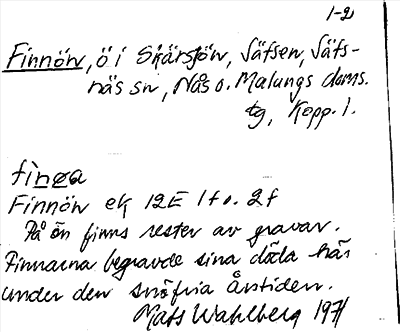 1-2
Finnön, ö i Skärsjön, Säfsen, Säfs-
näs sn, Nås o. Malungs doms.
tg, Kopp. l.
finøa
Finnön ek 12E 1f o. 2f
På ön finns rester av gravar.
Finnarna begravde sina döda här
under den snöfria årstiden.
Mats Wahlberg 1971